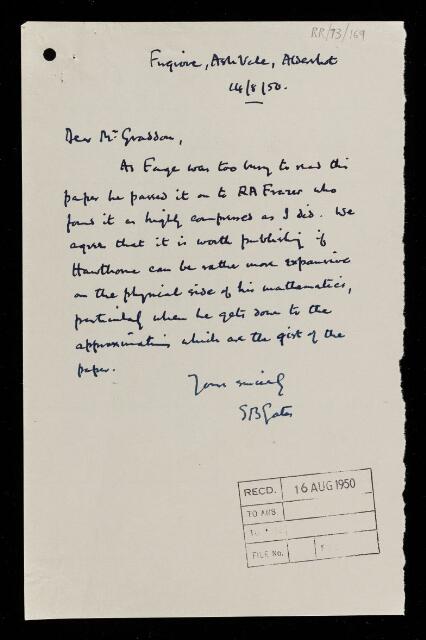 RR/73/169
Fugiove, Ash Vale, Aldershot
14/8/50.
Dear Mr Graddon,
As Fage was too busy to read this
paper he passed it on to RA Frazer who
found it as highly compressed as I did. We
agree that it is worth publishing if
Hawthorne can be rather more expansive
on the physical side of his mathematics,
particularly when he gets down to the
approximations which are the gist of the
paper.
Yours sincerely
SBGates
RECD. 16 AUG 1950
TO ANS.
FILE No.